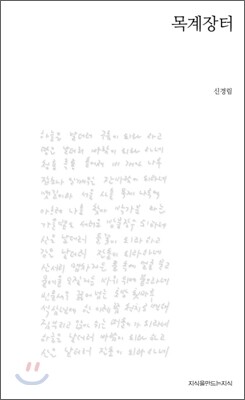 목계장터
신경림
하늘은 날더러 구름이 되라 하고
땅은 날더러 바람이 되라 하네
청룡 흑룡 흩어져 비 개인 나루
잡초나 일깨우는 잔바람이 되라네
뱃길이라 서울 사흘 목계 나루에
아흐레 나흘 찾아 박가분 파는
가을볕도 서러운 방물장수 되라네
산은 날더러 들꽃이 되라 하고
강은 날더러 잔돌이 되라 하네
산서리 맵차거든 풀 속에 얼굴 묻고
물여울 모질거든 바위 뒤에 붙으라네
민물새우 끓어넘는 토방 툇마루
석삼년에 한 이레쯤 천치로 변해
짐부리고 앉아 쉬는 떠돌이가 되라네
하늘은 날더러 바람이 되라 하고
산은 날더러 잔돌이 되라 하네
지식을만드는지식
YES24